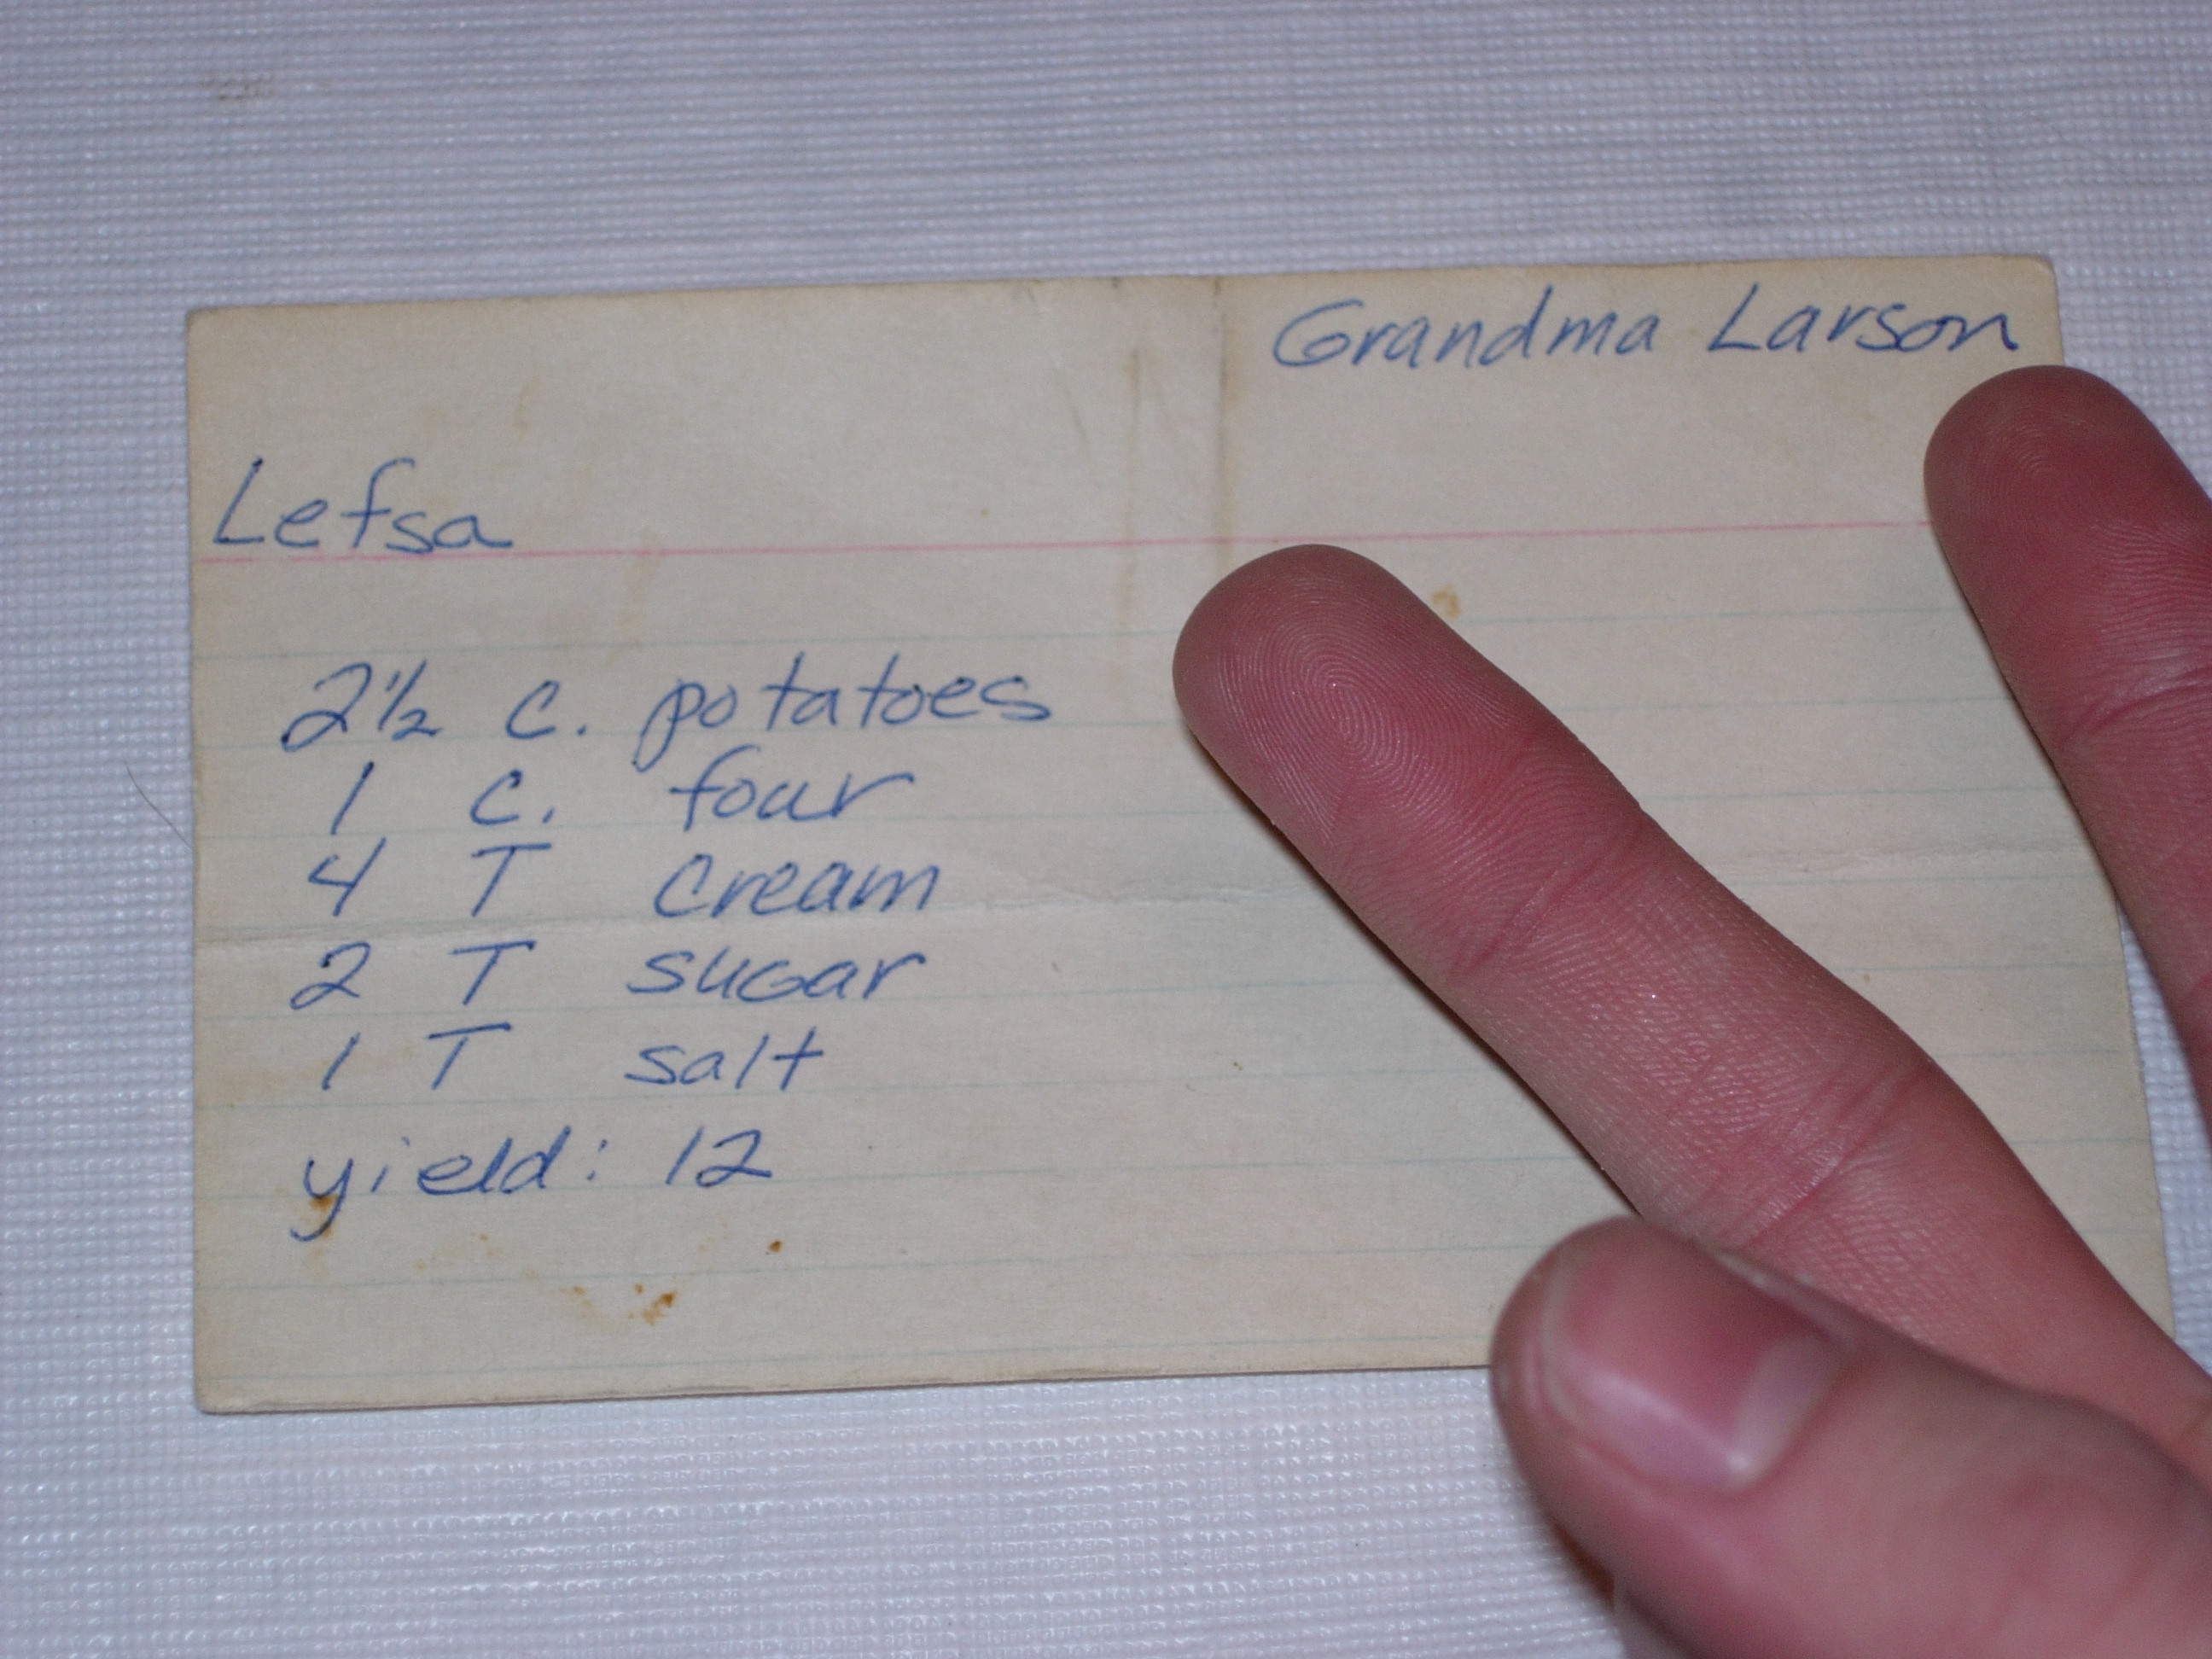 Grandma Larson
Lefsa
2 1/2 C. potatoes
1 C. four
4 T cream
2 T sugar
1 T salt
yield: 12